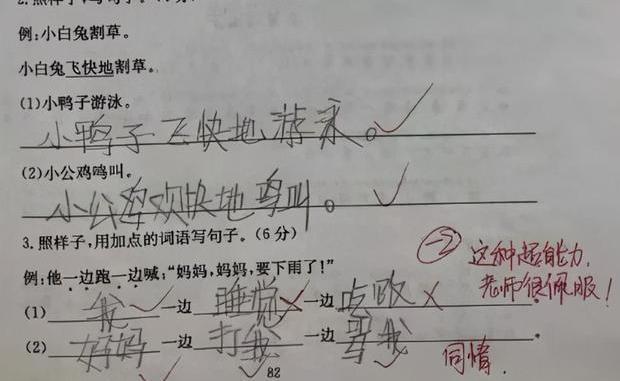 例:小白兔割草。
小白兔飞快地割草。
(1)小鸭子游泳。
小鸭子飞快地游泳。
(2)小公鸡鸣叫。
小公鸡欢快地鸣叫。
3.照样子,用加点的词语写句子。(6分)
例:他一边跑一边喊:“妈妈,妈妈,要下雨了!”
(1) 我 一边 睡觉 一边 吃饭
(2) 妈妈 一边 打我 一边 骂我 。
82
-2 这种超能力,
老师很佩服!
同情.